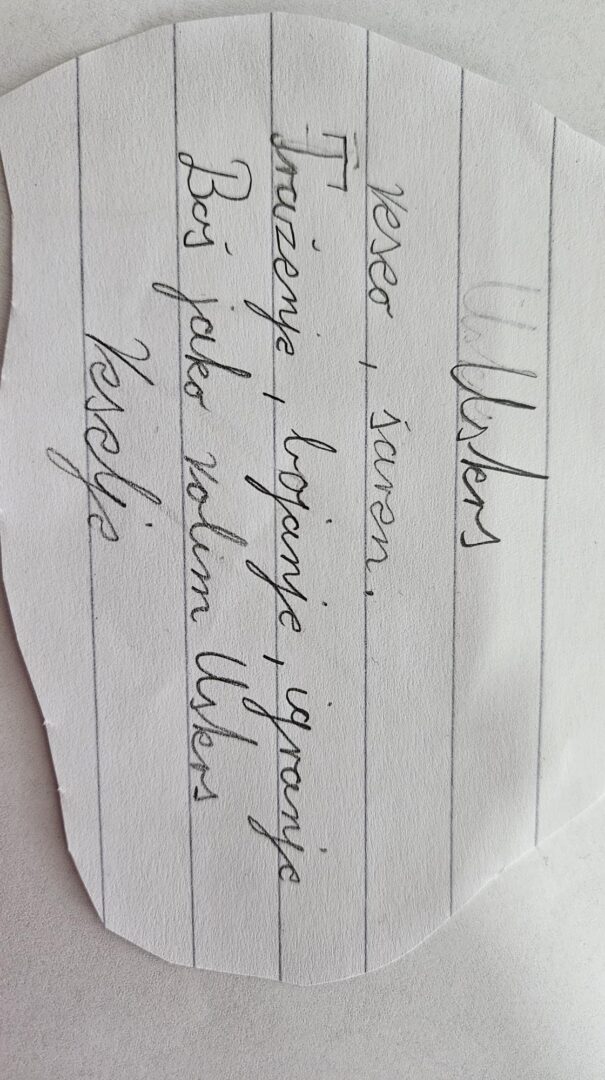 Uskrs
veseo, šaren.
Traženje, bojanje, igranje
Baš jako volim Uskrs
Veselje